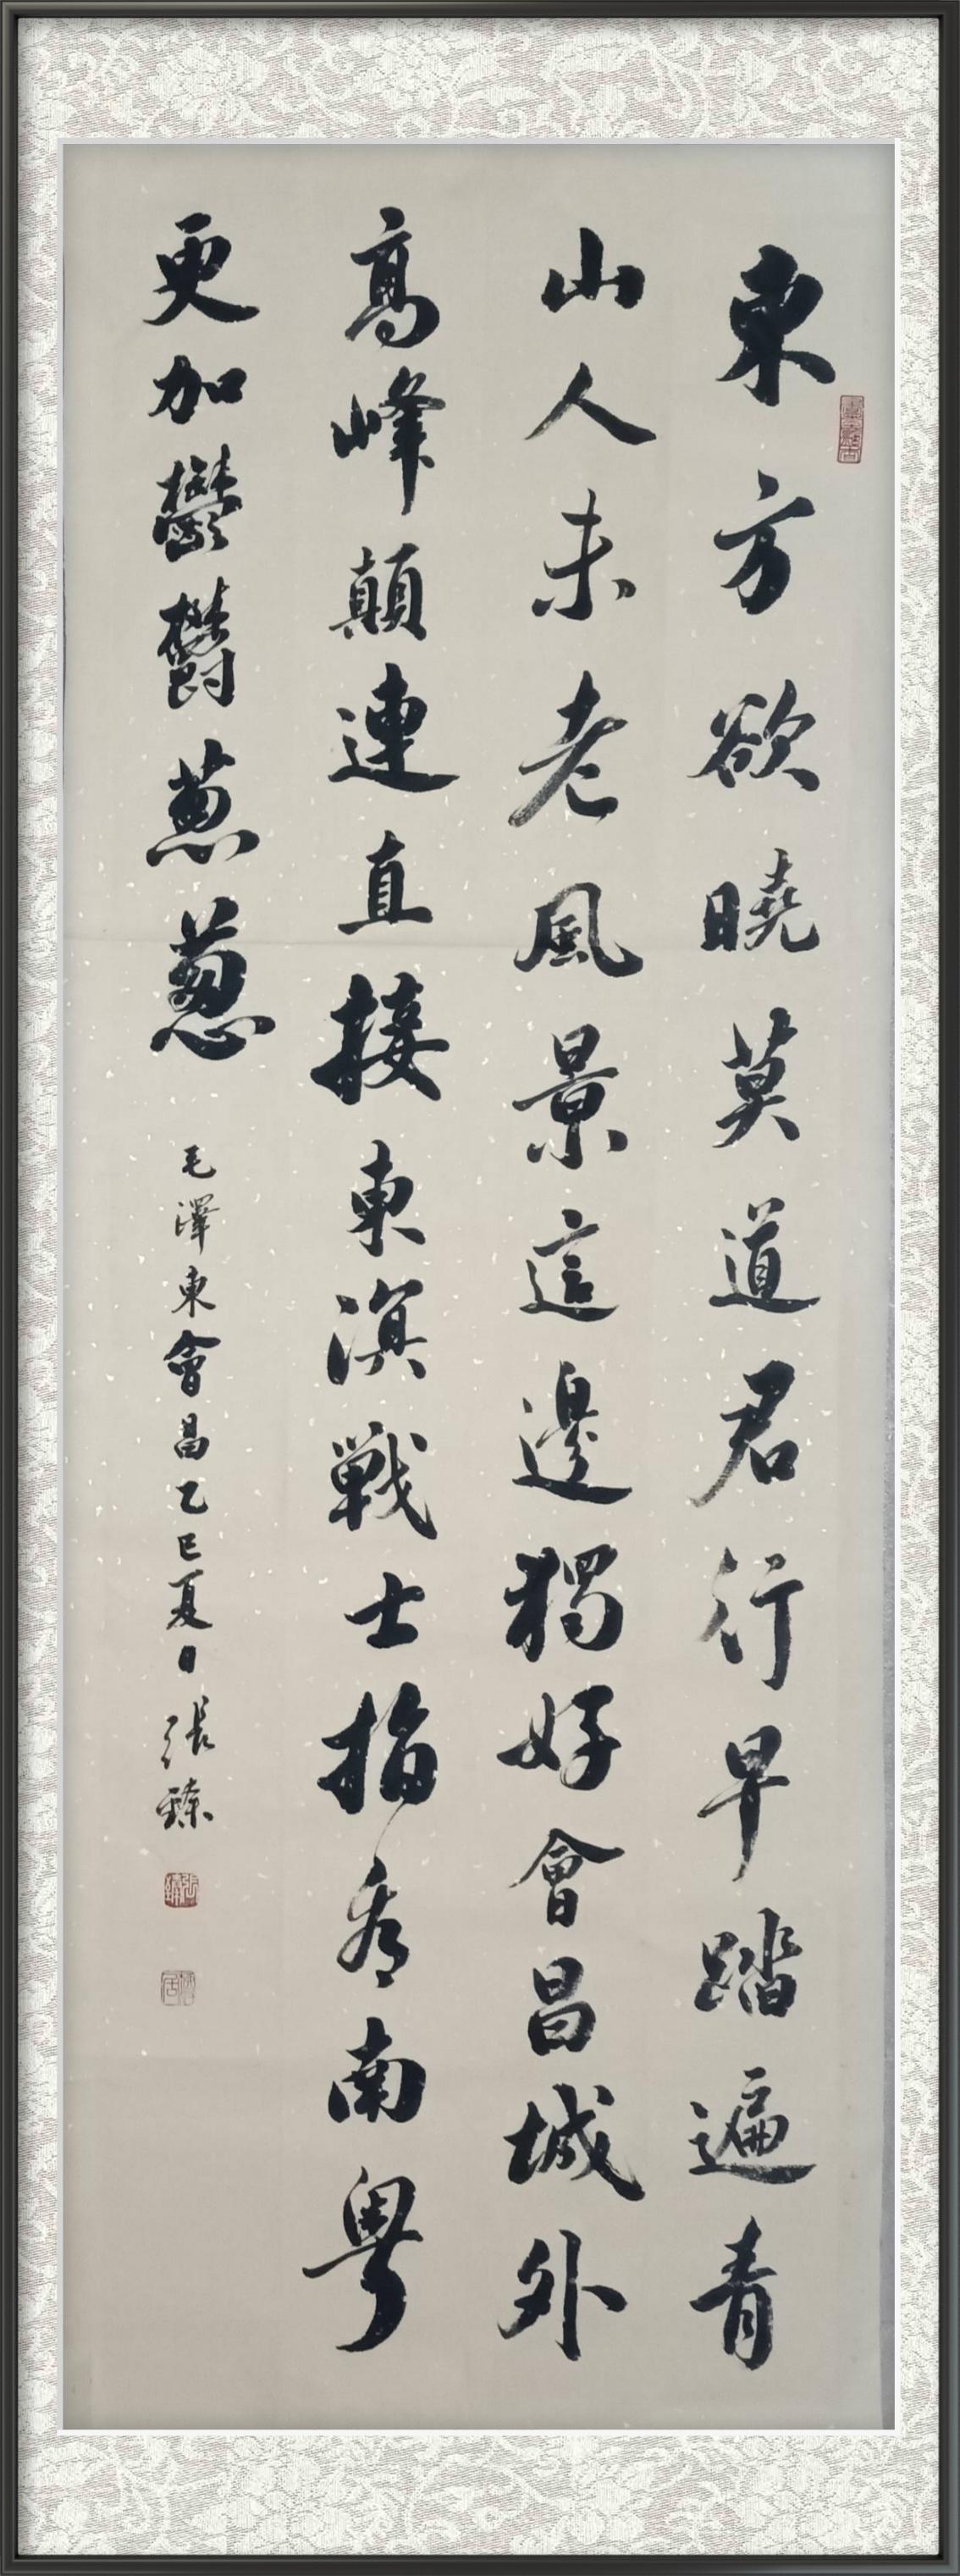 東方欲曉莫道君行早踏遍青
山人未老風景這邊獨好會昌城外
高峰顛連直接東溟戰士指看南粵
更加鬱鬱蔥蔥
毛澤東會昌乙巳夏日張臻